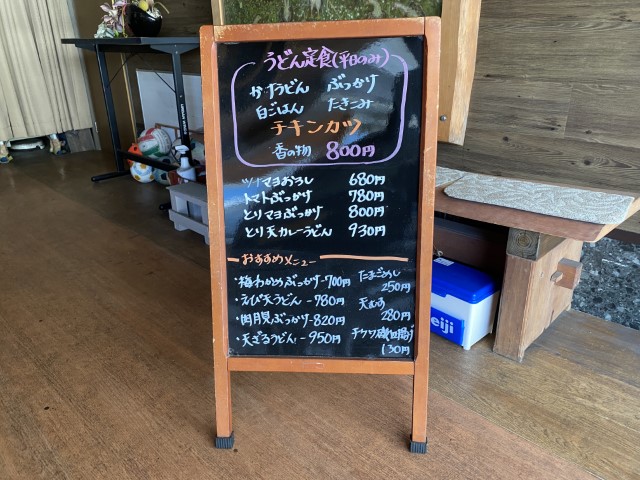 うどん定食(平日のみ)
かけうどん ぶっかけ
白ごはん たきこみ
チキンカツ
香の物 800円
ツナマヨおろし 680円
トマトぶっかけ 780円
とりマヨぶっかけ 800円
とり天カレーうどん 930円
おすすめメニュー
・梅わかめぶっかけ-700円
・えび天うどん-980円
・肉月見ぶっかけ-820円
・天ざるうどん-950円
たまごめし
250円
天むす
280円
チクワ磯辺揚げ
130円
eiji